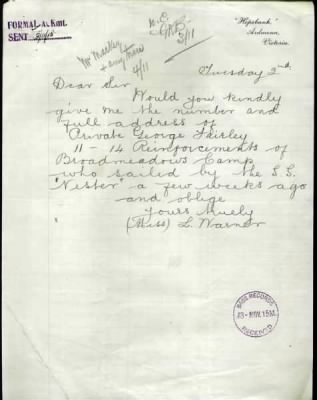 FORMAL A. Kmt.
SENT
5/11
4/11
"Hepsbank"
Ardmona,
Victoria.
Tuesday 2nd.
Dear Sir
Would you kindly
give me the number and
full address of
Private George Fairley
11 - 14 Reinforcements of
Broadmeadows Camp
who sailed by the S.S.
"Nestor" a few weeks ago
and oblige
yours truely
(Miss) L. Warner
BASE RECORDS
3 - NOV. 1915
RECEIVED